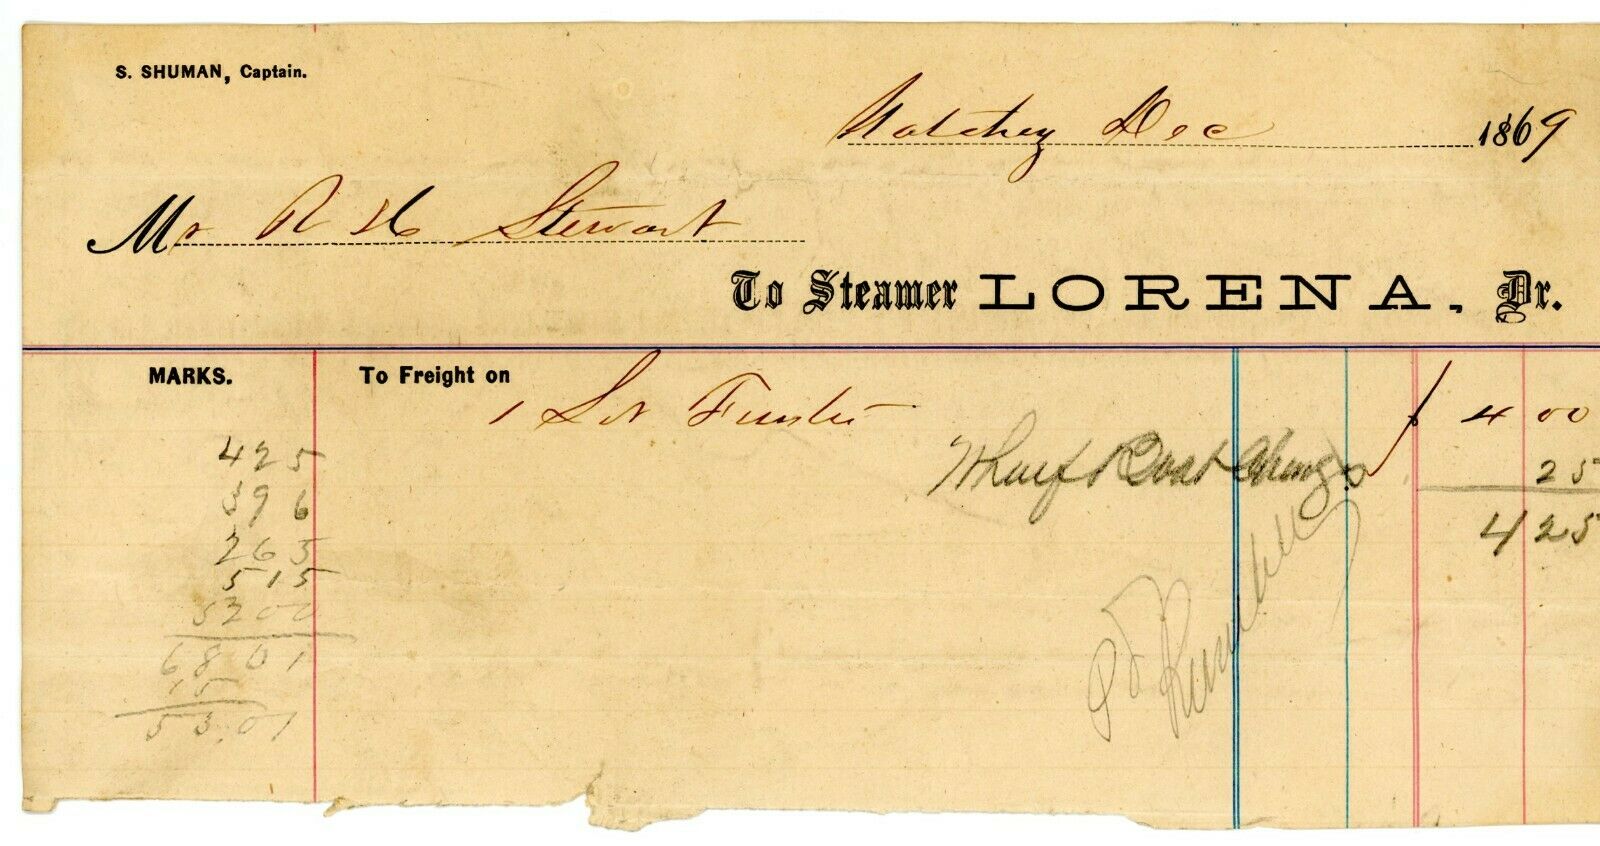 S. SHUMAN, Captain.
Natchez Dec 1869
Mr R H Stewart
To Steamer LORENA, Dr.
MARKS. To Freight on
1 Lot $ 4 00
Wharf Boat Charges 25
4 25
425
396
265
515
5200
6801
15
53.01